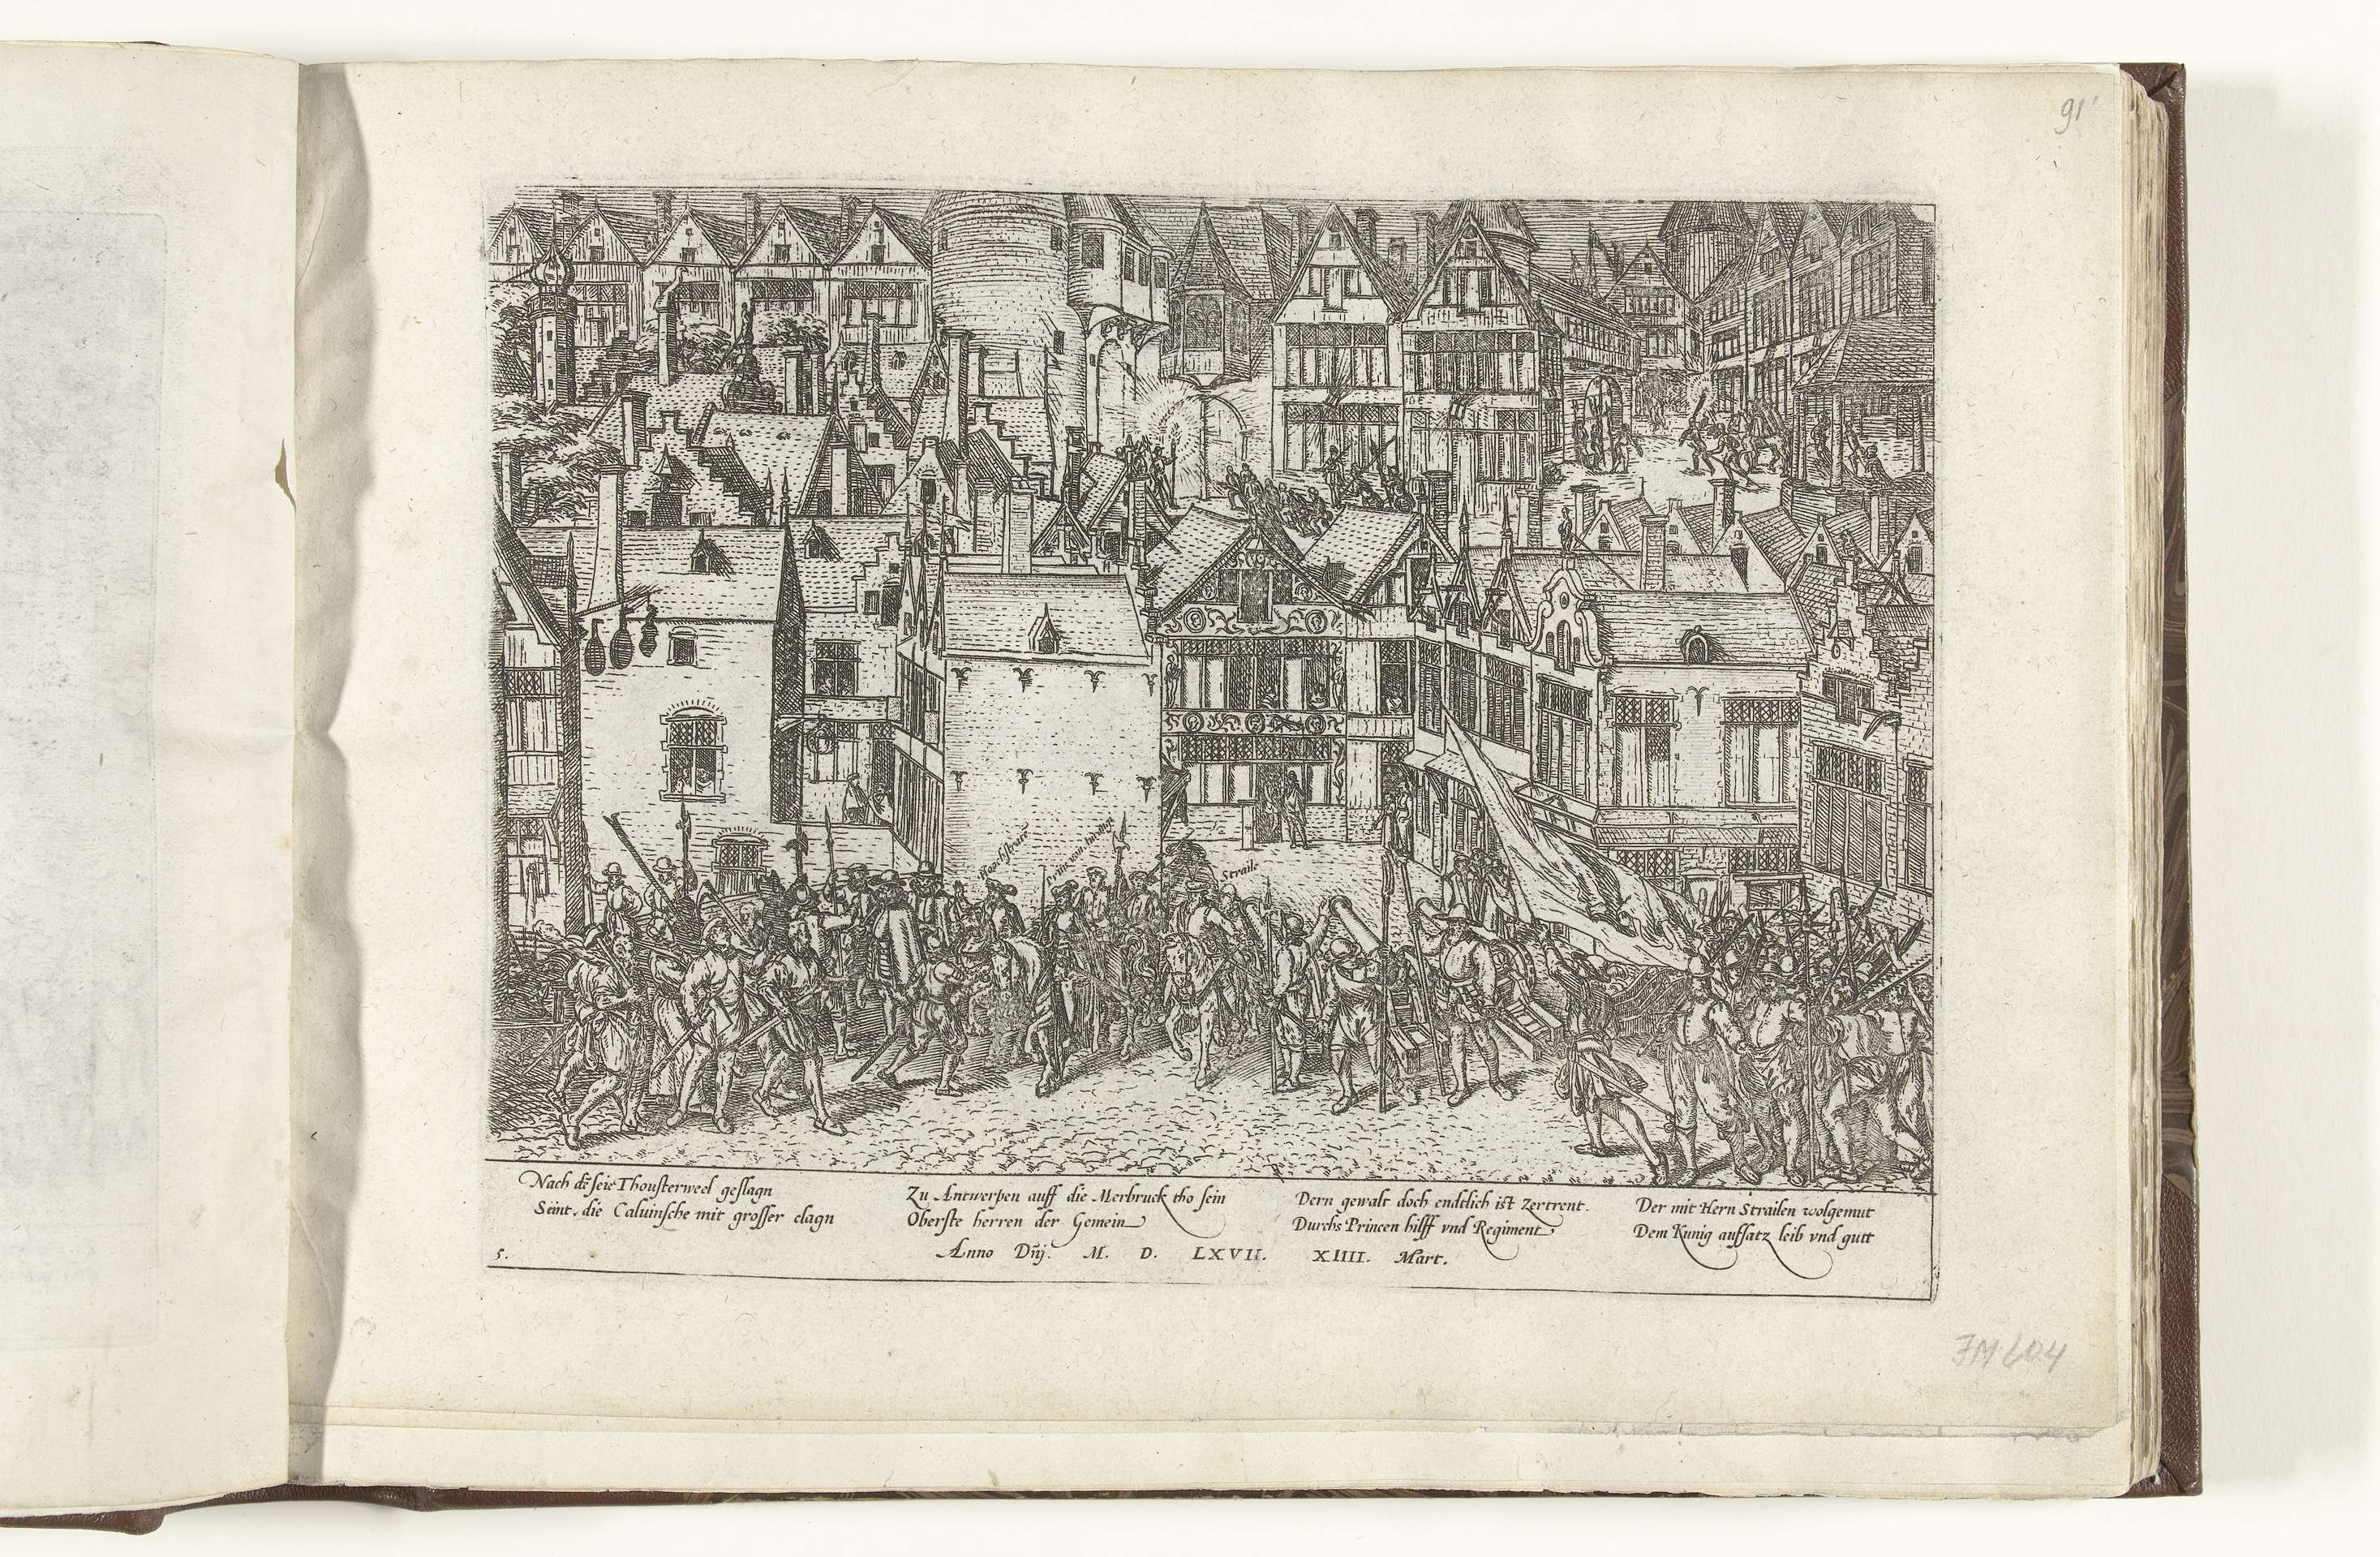 91
Hoochstraten
Prins van
Straile
Nach dē seie Thousterweel geslagn
Seint, die Caluinsche mit grosser clagn
Zu Antwerpen auff die Merbruck tho sein
Oberste herren der Gemein
Dern gewalt doch endtlich ist Zertrent.
Durchs Princen hilff vnd Regiment
Der mit Hern Strailen wolgemut
Dem Kunig auffsatz leib vnd gutt
5.
Anno Dnj. M. D. LXVII. XIIII. Mart.
FM 604